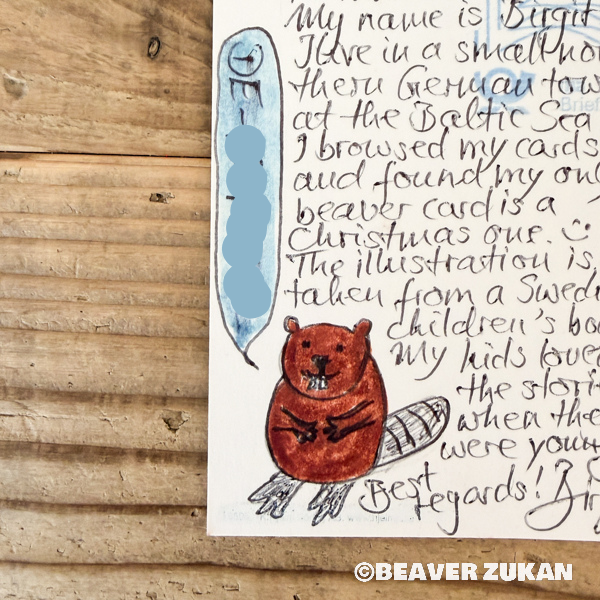 My name is Birgit
I live in a small nor
thern German tow
at the Baltic Sea
I browsed my cards
and found my onl
beaver card is a
Christmas one.
The illustration is
taken from a Swedi
children's bo
My kids love
the stori
when the
were youn
Best
regards! Bir
DE-
Brief
©BEAVER ZUKAN